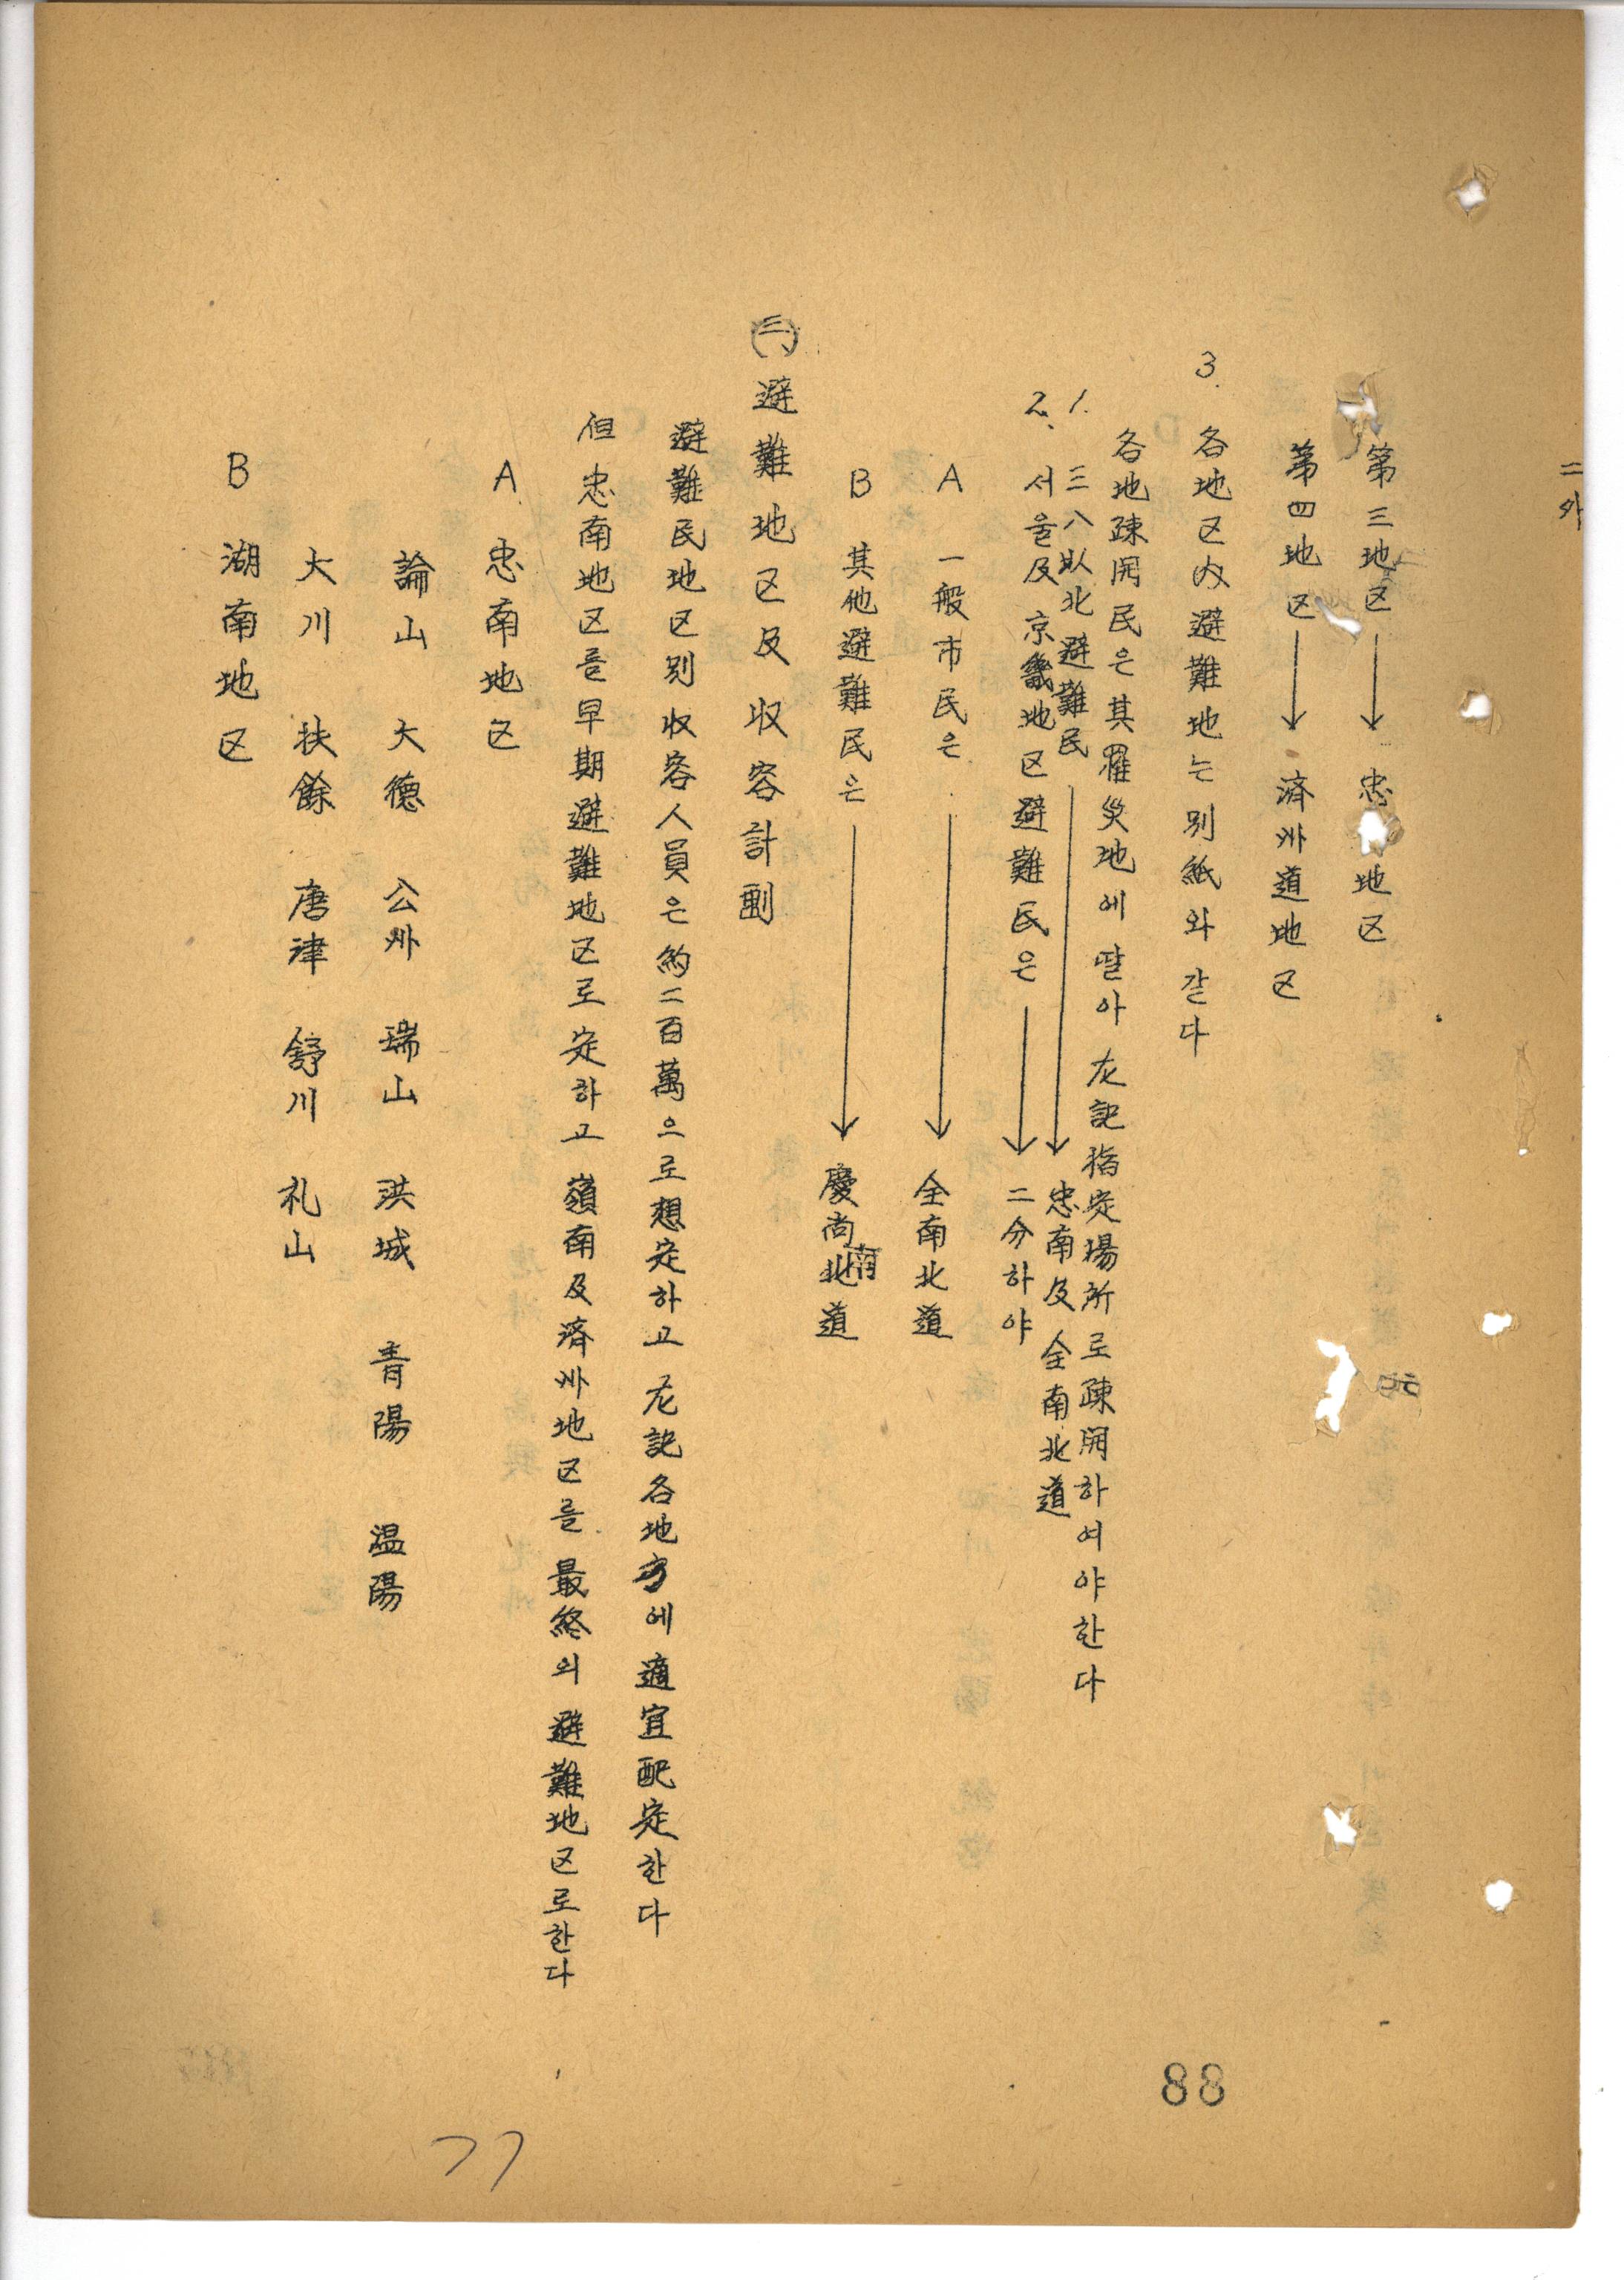 二外
第三地区 → 忠 地区
第四地区 → 済州道地区
3. 各地区內避難地는 別紙와 같다
各地疎開民은 其罹災地에 딸아 左記指定場所로 疎開하여야 한다
1. 三八以北避難民 → 忠南及 全南北道
2. 서울及京畿地区避難民은 → 二分하야
A 一般市民은 → 全南北道
B 其他避難民은 → 慶尚南北道
(三) 避難地区及收容計劃
避難民地区別收容人員은 約二百萬으로 想定하고 左記各地方에 適宜配定한다
但 忠南地区를 早期避難地区로 定하고 嶺南及済州地区를 最終의 避難地区로한다
A 忠南地区
論山 大德 公州 瑞山 洪城 青陽 温陽
大川 扶餘 唐津 舒川 礼山
B 湖南地区
88
77